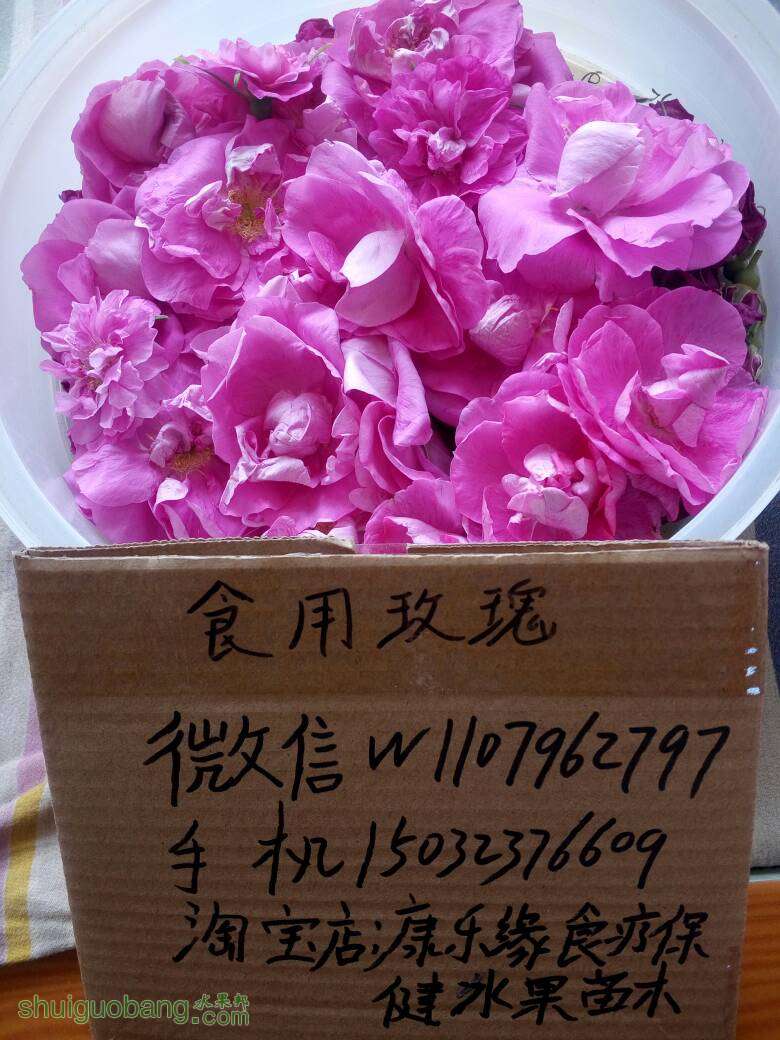 食用玫瑰
微信W1107962797
手机15032376609
淘宝店:康乐缘食疗保
健水果苗木
shuiguobang.com
水果邦